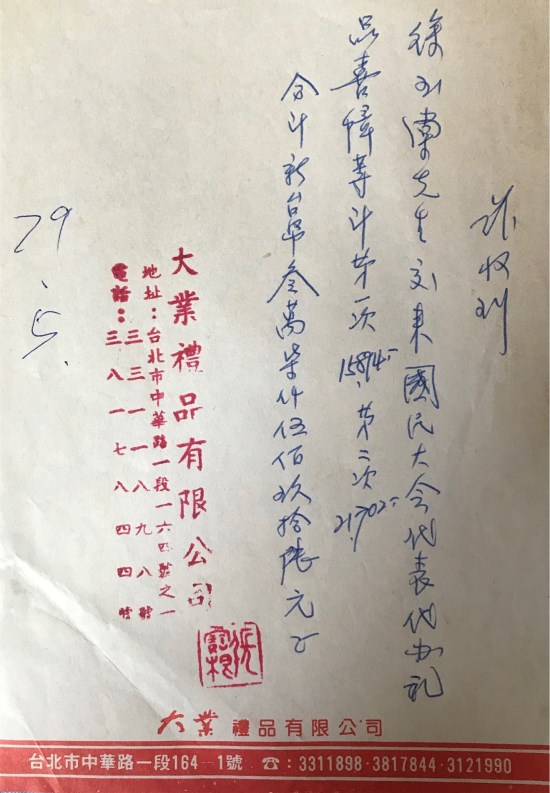 茲收到
徐玉蘭先生交來國民大會代表代办礼
品喜幛等计第一次15894-、第二次21702-
合计新台幣叁萬柒仟伍佰玖拾陸元正
大業禮品有限公司
地址：台北市中華路一段一六四號之一
三三一一八九八號
電話：三八一七八四四號
79.5.
大業禮品有限公司
台北市中華路一段164—1號 ☎：3311898·3817844·3121990